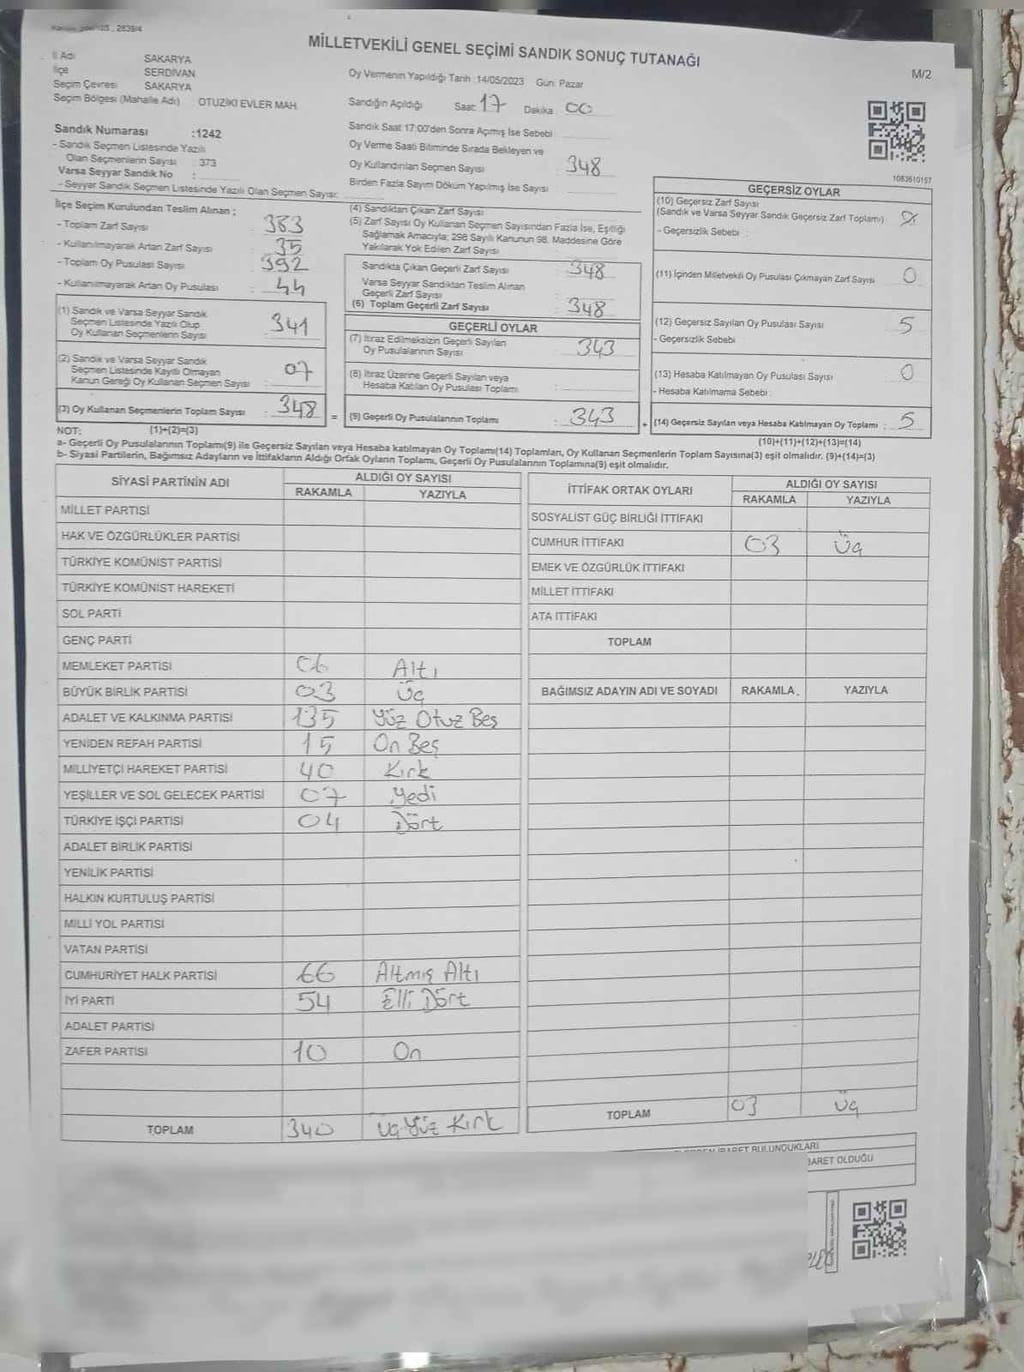 MİLLETVEKİLİ GENEL SEÇİMİ SANDIK SONUÇ TUTANAĞI
M/2
İl Adı SAKARYA
İlçe SERDİVAN
Seçim Çevresi SAKARYA
Seçim Bölgesi (Mahalle Adı) OTUZİKİ EVLER MAH.
Oy Vermenin Yapıldığı Tarih :14/05/2023 Gün: Pazar
Sandığın Açıldığı Saat 17 Dakika 00
Sandık Saat 17:00'den Sonra Açmış İse Sebebi
Oy Verme Saati Bitiminde Sırada Bekleyen ve
Oy Kullandırılan Seçmen Sayısı 348
Birden Fazla Sayım Döküm Yapılmış İse Sayısı
Sandık Numarası :1242
- Sandık Seçmen Listesinde Yazılı
Olan Seçmenlerin Sayısı : 373
Varsa Seyyar Sandık No :
- Seyyar Sandık Seçmen Listesinde Yazılı Olan Seçmen Sayısı:
İlçe Seçim Kurulundan Teslim Alınan ;
- Toplam Zarf Sayısı : 383
- Kullanılmayarak Artan Zarf Sayısı : 35
- Toplam Oy Pusulası Sayısı : 392
- Kullanılmayarak Artan Oy Pusulası : 44
(1) Sandık ve Varsa Seyyar Sandık
Seçmen Listesinde Yazılı Olup
Oy Kullanan Seçmenlerin Sayısı : 341
(2) Sandık ve Varsa Seyyar Sandık
Seçmen Listesinde Kayıtlı Olmayan
Kanun Gereği Oy Kullanan Seçmen Sayısı : 07
(3) Oy Kullanan Seçmenlerin Toplam Sayısı : 348 =
(4) Sandıktan Çıkan Zarf Sayısı
(5) Zarf Sayısı Oy Kullanan Seçmen Sayısından Fazla İse, Eşitliği
Sağlamak Amacıyla; 298 Sayılı Kanunun 98. Maddesine Göre
Yakılarak Yok Edilen Zarf Sayısı
Sandıkta Çıkan Geçerli Zarf Sayısı : 348
Varsa Seyyar Sandıktan Teslim Alınan
Geçerli Zarf Sayısı
(6) Toplam Geçerli Zarf Sayısı : 348
GEÇERLİ OYLAR
(7) İtiraz Edilmeksizin Geçerli Sayılan
Oy Pusulalarının Sayısı : 343
(8) İtiraz Üzerine Geçerli Sayılan veya
Hesaba Katılan Oy Pusulası Toplamı :
(9) Geçerli Oy Pusulalarının Toplamı : 343 +
1083610157
GEÇERSİZ OYLAR
(10) Geçersiz Zarf Sayısı
(Sandık ve Varsa Seyyar Sandık Geçersiz Zarf Toplamı)
- Geçersizlik Sebebi :
(11) İçinden Milletvekili Oy Pusulası Çıkmayan Zarf Sayısı 0
(12) Geçersiz Sayılan Oy Pusulası Sayısı : 5
- Geçersizlik Sebebi
(13) Hesaba Katılmayan Oy Pusulası Sayısı : 0
- Hesaba Katılmama Sebebi :
(14) Geçersiz Sayılan veya Hesaba Katılmayan Oy Toplamı : 5
NOT: (1)+(2)=(3)
(10)+(11)+(12)+(13)=(14)
a- Geçerli Oy Pusulalarının Toplamı(9) ile Geçersiz Sayılan veya Hesaba katılmayan Oy Toplamı(14) Toplamları, Oy Kullanan Seçmenlerin Toplam Sayısına(3) eşit olmalıdır. (9)+(14)=(3)
b- Siyasi Partilerin, Bağımsız Adayların ve İttifakların Aldığı Ortak Oyların Toplamı, Geçerli Oy Pusulalarının Toplamına(9) eşit olmalıdır.
SİYASİ PARTİNİN ADI ALDIĞI OY SAYISI
RAKAMLA YAZIYLA
MİLLET PARTİSİ
HAK VE ÖZGÜRLÜKLER PARTİSİ
TÜRKİYE KOMÜNİST PARTİSİ
TÜRKİYE KOMÜNİST HAREKETİ
SOL PARTİ
GENÇ PARTİ
MEMLEKET PARTİSİ 06 Altı
BÜYÜK BİRLİK PARTİSİ 03 Üç
ADALET VE KALKINMA PARTİSİ 135 Yüz Otuz Beş
YENİDEN REFAH PARTİSİ 15 On Beş
MİLLİYETÇİ HAREKET PARTİSİ 40 Kırk
YEŞİLLER VE SOL GELECEK PARTİSİ 07 Yedi
TÜRKİYE İŞÇİ PARTİSİ 04 Dört
ADALET BİRLİK PARTİSİ
YENİLİK PARTİSİ
HALKIN KURTULUŞ PARTİSİ
MİLLİ YOL PARTİSİ
VATAN PARTİSİ
CUMHURİYET HALK PARTİSİ 66 Altmış Altı
İYİ PARTİ 54 Elli Dört
ADALET PARTİSİ
ZAFER PARTİSİ 10 On
TOPLAM 340 Üç Yüz Kırk
İTTİFAK ORTAK OYLARI ALDIĞI OY SAYISI
RAKAMLA YAZIYLA
SOSYALİST GÜÇ BİRLİĞİ İTTİFAKI
CUMHUR İTTİFAKI 03 Üç
EMEK VE ÖZGÜRLÜK İTTİFAKI
MİLLET İTTİFAKI
ATA İTTİFAKI
TOPLAM
BAĞIMSIZ ADAYIN ADI VE SOYADI RAKAMLA YAZIYLA
TOPLAM 03 Üç
BULUNDUKLARI
OLDUĞU